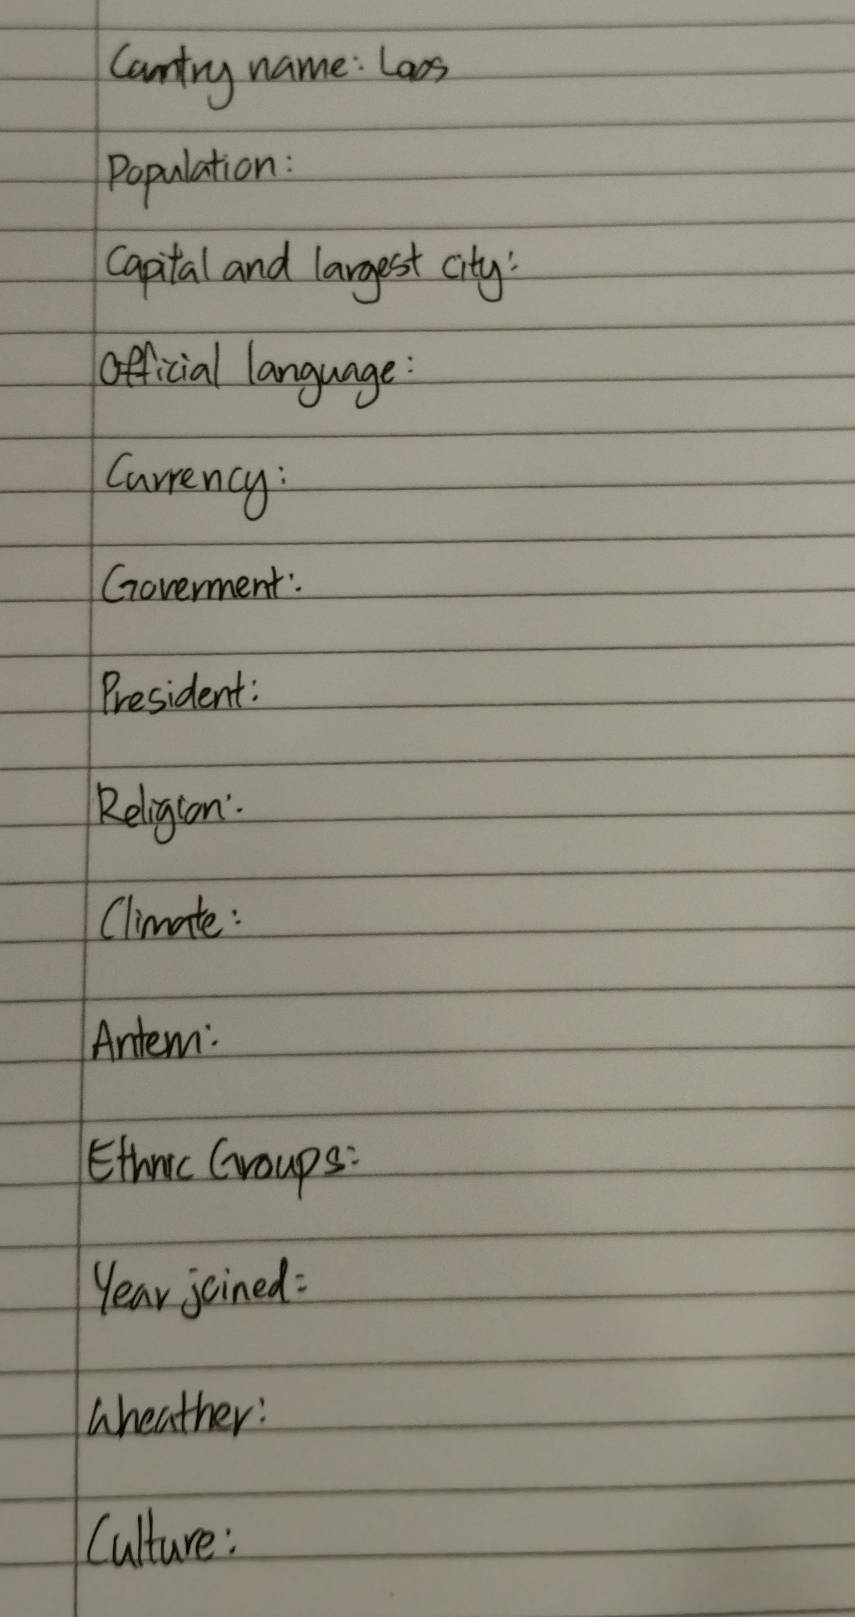 Cuntry name: Laos
Population:
Capital and largest city:
Official language:
Currency:
Goverment:
President:
Religion:
Climate:
Antem:
Ethnic Groups:
Year joined:
Wheather:
Culture: